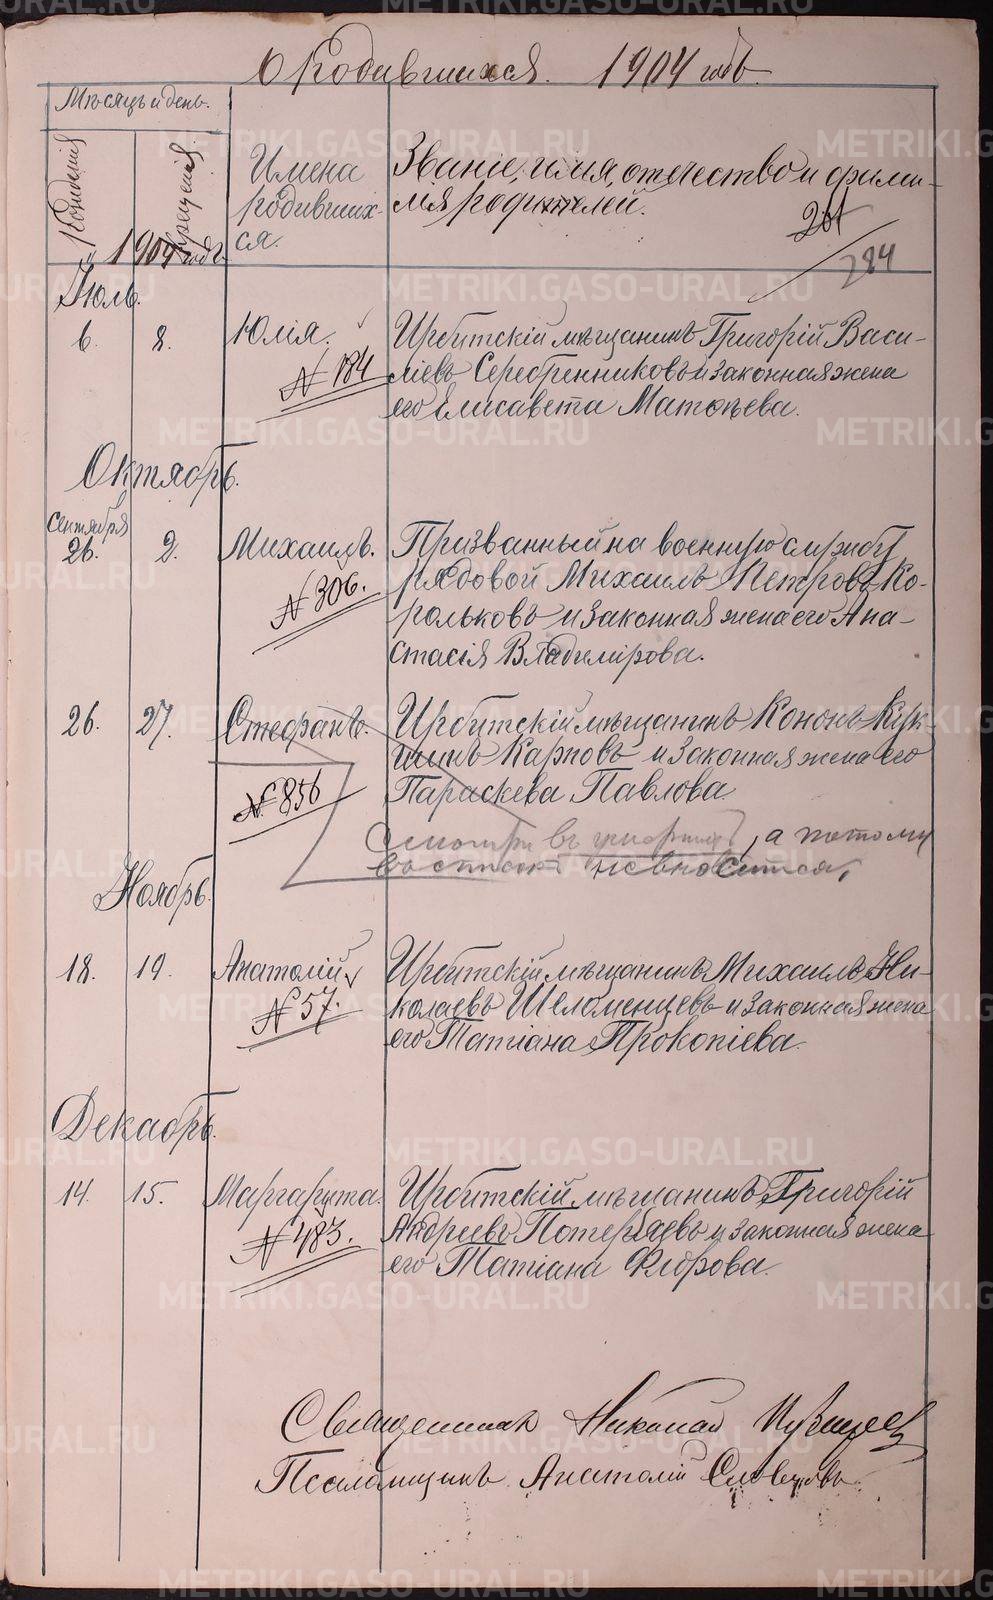 О Родившихся. 1904 годъ
Мѣсяцъ и день.
рожденія
крещенія
1904 годъ
Имена
родивших-
ся.
Званіе, имя, отечество и фами-
лія родителей.
284
Іюль.
6. 8. Юлія.
№ 184
Ирбитскій мѣщанинъ Григорій Васи-
ліевъ Серебренниковъ и законная жена
его Елисавета Матѳѣева.
Октябрь.
Сентября
26. 2. Михаилъ.
№ 306.
Призванный на военную службу
рядовой Михаилъ Петровъ Ко-
рольковъ и законная жена его Ана-
стасія Владимірова.
26. 27. Стефанъ.
№ 856
Ирбитскій мѣщанинъ Кононъ Кук-
шинъ Карповъ и законная жена его
Параскева Павлова.
Смотри въ , а потому
въ списокъ не вносится.
Ноябрь.
18. 19. Анатолій
№ 57.
Ирбитскій мѣщанинъ Михаилъ Ни-
колаевъ Шеломенцевъ и законная жена
его Татіана Прокопіева.
Декабрь.
14. 15. Маргарита.
№ 483.
Ирбитскій мѣщанинъ Григорій
Андреевъ Потеряевъ и законная жена
его Татіана Флорова.
Священникъ Николай
Псаломщикъ Анатолій Словцовъ.
METRIKI.GASO-URAL.RU